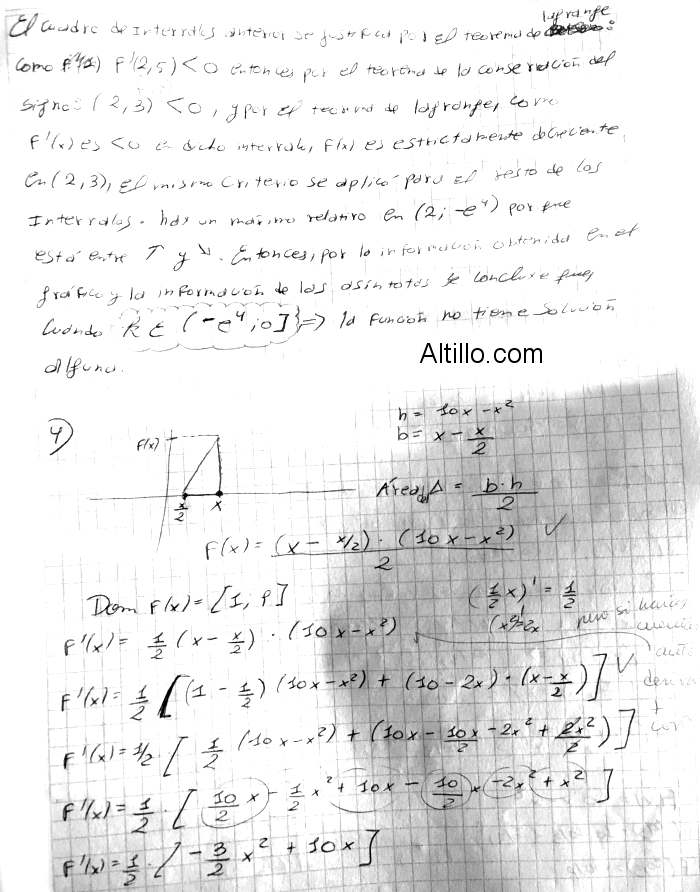 El cuadro de Intervalos anterior se justifica por el teorema de lagrange:
Como F'(2,5) < 0 entonces por el teorema de la conservación del
signo: (2,3) < 0, y por el teorema de lagrange, como
F'(x) es < 0 en dicho intervalo, F(x) es estrictamente decreciente
en (2,3), el mismo criterio se aplicó para el resto de los
Intervalos. hay un máximo relativo en (2; -e⁴) por que
está entre ↑ y ↘. Entonces, por la información obtenida en el
gráfico y la información de las asíntotas se concluye que,
Cuando k ∈ (-e⁴; 0] } => la Función no tiene solución
alguna.
Altillo.com
4)
h = 10x - x²
b = x - x/2
F(x)
x/2 x
Área Δ = b·h/2
F(x) = (x - x/2) · (10x - x²) / 2 ✓
Dom F(x) = [1, 9]
(1/2 x)' = 1/2
(x²)' = 2x
pero si
F'(x) = 1/2 (x - x/2) · (10x - x²)
F'(x) = 1/2 [(1 - 1/2) (10x - x²) + (10 - 2x) · (x - x/2)] ✓
F'(x) = 1/2 · [1/2 (10x - x²) + (10x - 10x/2 - 2x² + 2x²/2)]
F'(x) = 1/2 · [10/2 x - 1/2 x² + 10x - 10/2 x - 2x² + x²]
F'(x) = 1/2 · [-3/2 x² + 10x]